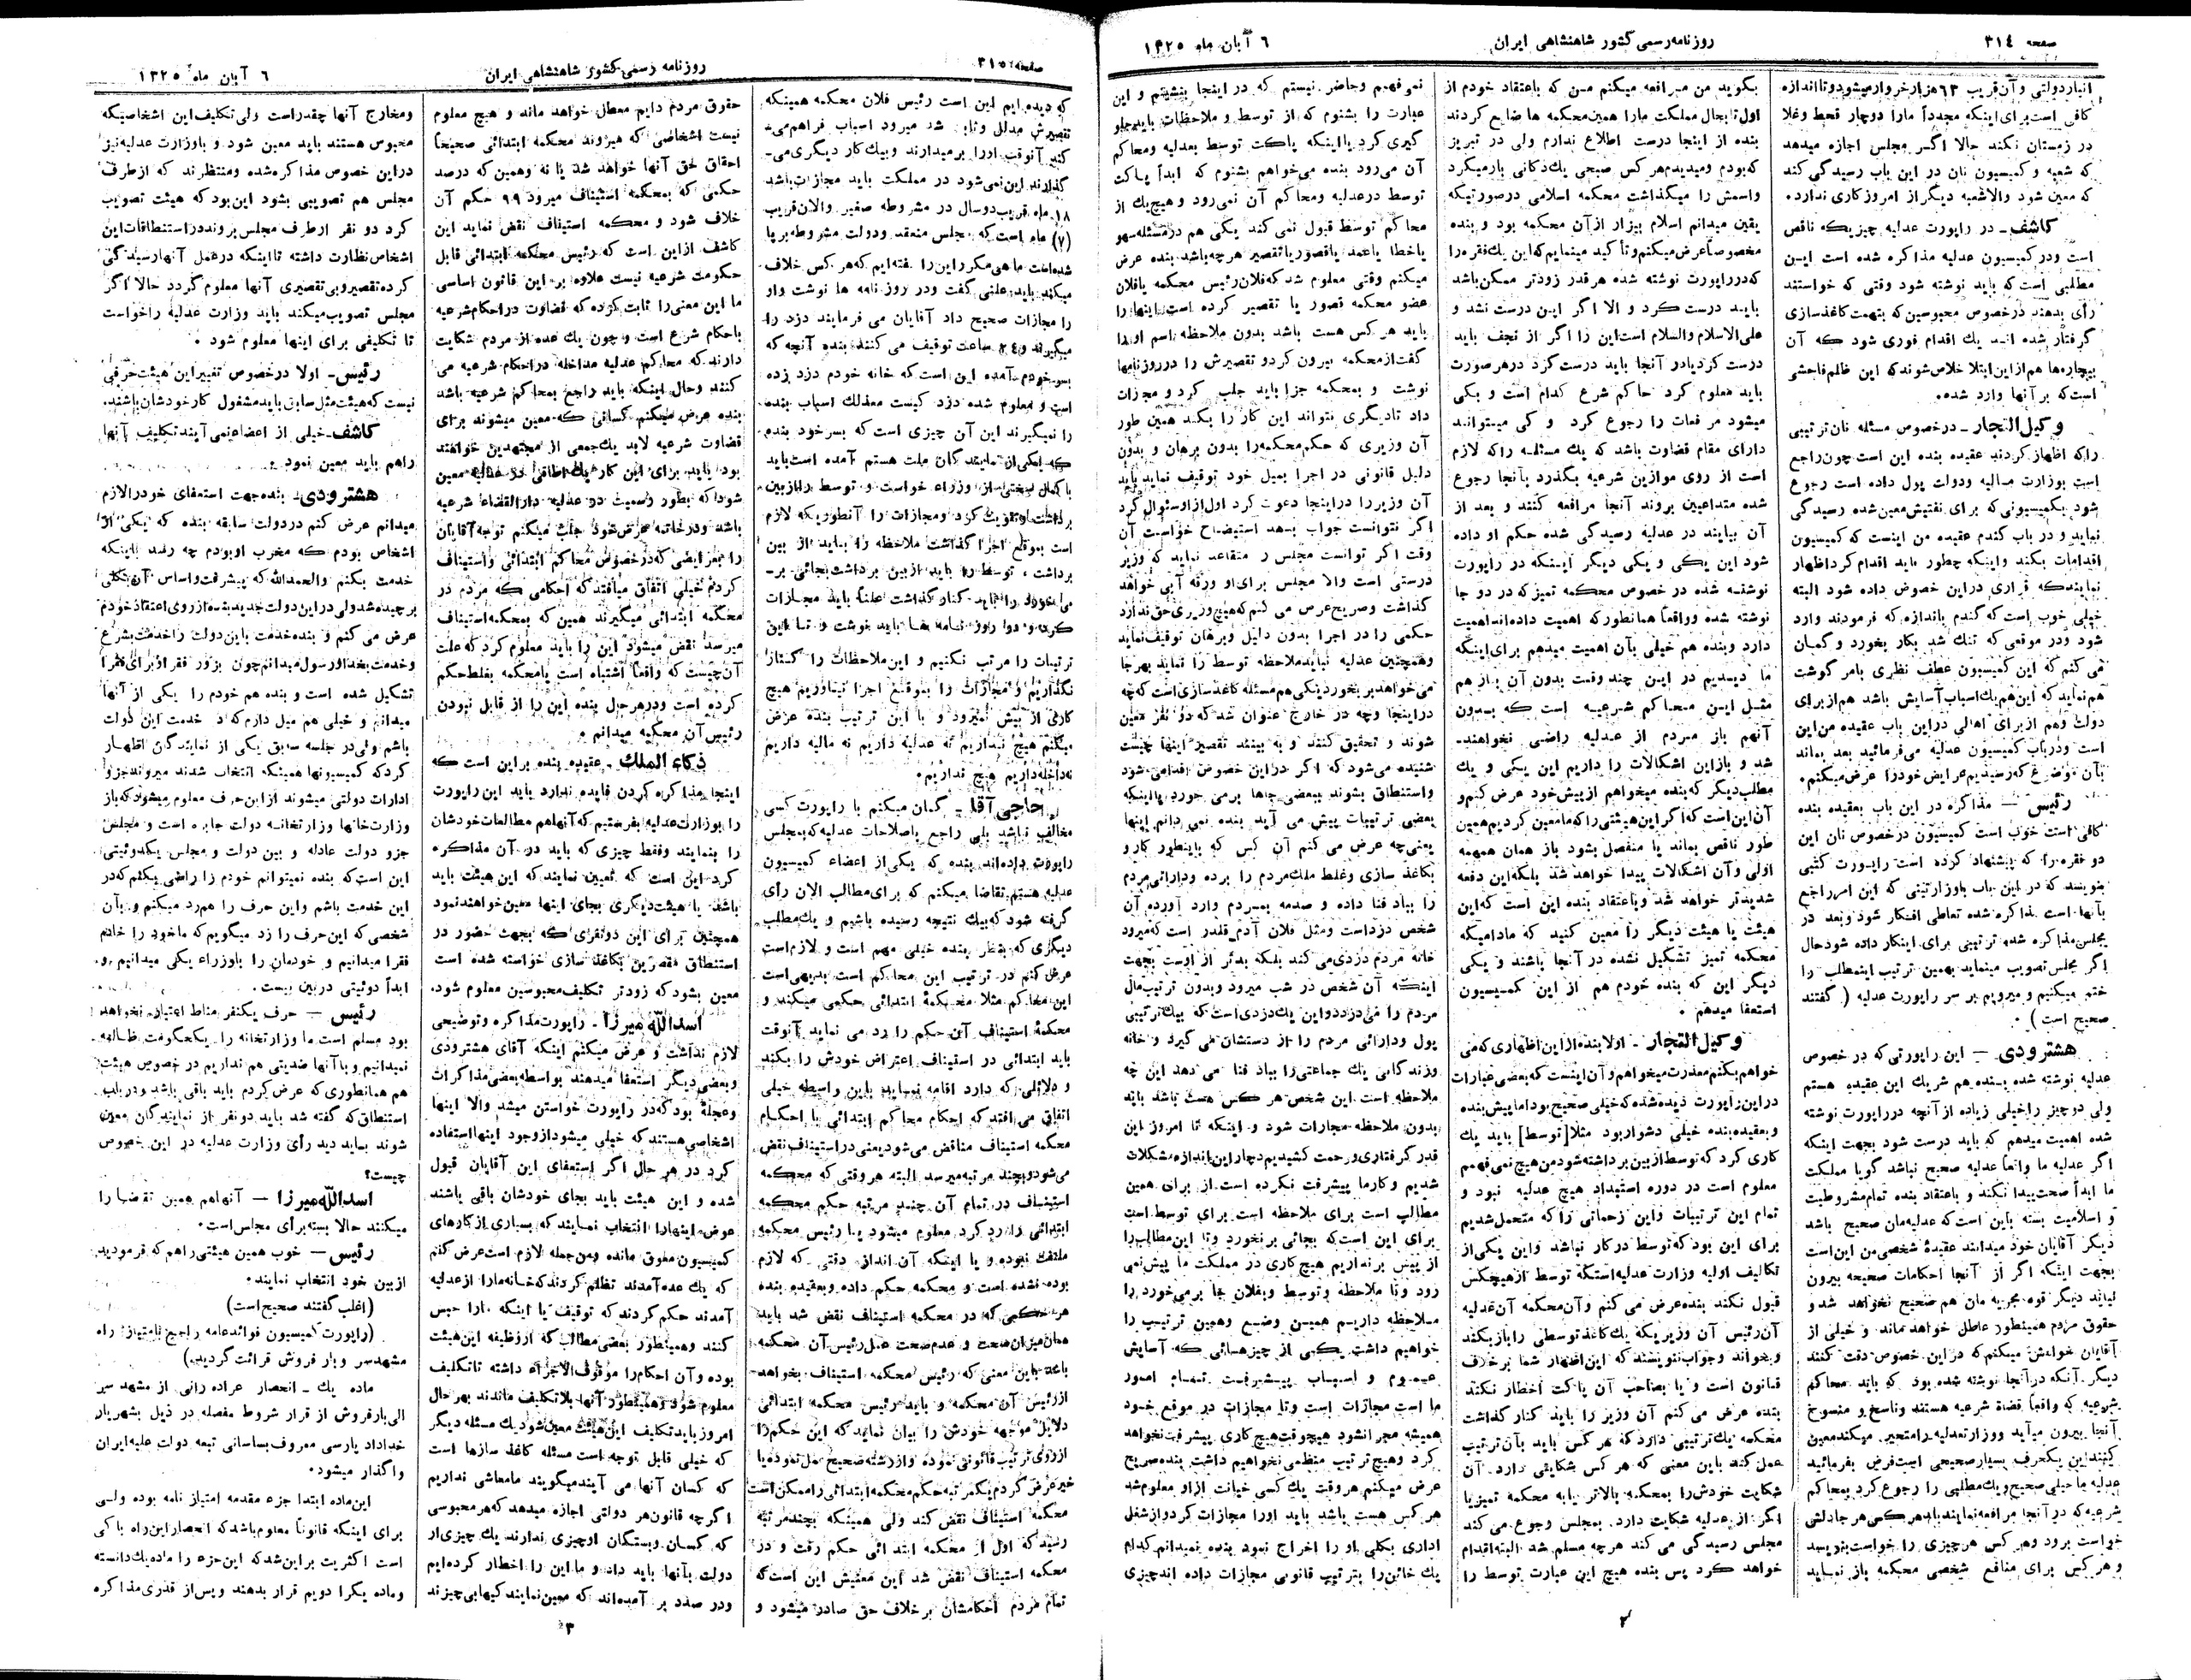 صفحه ٣١٤
روزنامه رسمی کشور شاهنشاهی ایران
٦ آبان ماه ١٣٢٥
کافی است برای اینکه مجدداً مارا دوچار قحط وغلا
در زمستان نکند حالا اگر مجلس اجازه میدهد
که شعبه و کمیسیون نان در این باب رسیدگی کند
که معین شود والاشعبه دیگر از امروز کاری ندارد.
کاشف ـ در راپورت عدلیه چیزیکه ناقص
است ودر کمیسیون عدلیه مذاکره شده است این
مطلبی است که باید نوشته شود وقتی که خواستند
رأی بدهند درخصوص محبوسین که بتهمت کاغذسازی
گرفتار شده اند یك اقدام فوری شود که آن
بیچاره‌ها هم از این ابتلا خلاص شوند که این ظلم فاحشی
است که بر آنها وارد شده.
وکیل التجار ـ درخصوص مسئله نان ترتیبی
را که اظهار کردند عقیده بنده این است چون راجع
است بوزارت مالیه ودولت پول داده است رجوع
شود بکمیسیونی که برای تفتیش معین شده رسیدگی
نماید و در باب گندم عقیده من اینست که کمیسیون
اقدامات بکند واینکه چطور باید اقدام کرد اظهار
خیلی خوب است که گندم باندازه که فرمودند وارد
شود ودر موقعی که تنك شد بکار بخورد و گمان
می کنم که این کمیسیون عطف نظری بامر گوشت
هم نماید که این هم یك اسباب آسایش باشد هم از برای
دولت وهم از برای اهالی در این باب عقیده من این
است ودر باب کمیسیون عدلیه می فرمائید بعد بماند
بآن موضوع که رسیدیم عرایض خود را عرض میکنم.
رئیس ـ مذاکره در این باب بعقیده بنده
کافی است خوب است کمیسیون درخصوص نان این
دو فقره را که پیشنهاد کرده است راپورت کتبی
بنویسد که در این باب باوزارتیتی که این امر راجع
بآنها است مذاکره شده تعاطی افکار شود وبعد در
مجلس مذاکره شده ترتیبی برای اینکار داده شود حال
اگر مجلس تصویب مینماید بهمین ترتیب اینمطلب را
ختم میکنیم و میرویم بر سر راپورت عدلیه ( گفتند
صحیح است ) .
هشترودی ـ این راپورتی که در خصوص
عدلیه نوشته شده بنده هم شریك این عقیده هستم
ولی دوچیز را خیلی زیاده از آنچه در راپورت نوشته
شده اهمیت میدهم که باید درست شود بجهت اینکه
اگر عدلیه ما واقعاً عدلیه صحیح نباشد گویا مملکت
ما ابداً صحت پیدا نکند و باعتقاد بنده تمام مشروطیت
و اسلامیت بسته باین است که عدلیه‌مان صحیح باشد
دیگر آقایان خود میدانند عقیدهٔ شخصی من این است
بجهت اینکه اگر از آنجا احکامات صحیحه بیرون
نیاند دیگر قوه مجریه مان هم صحیح نخواهد شد و
حقوق مردم همینطور عاطل خواهد ماند و خیلی از
آقایان خواهش میکنم که در این خصوص دقت کنند
دیگر آنکه در آنجا نوشته شده بود که باید محاکم
شرعیه که واقعاً قضاة شرعیه هستند وناسخ و منسوخ
آنجا بیرون میآید ووزارت عدلیه را متحیر میکند معین
کنند این یکحرف بسیار صحیحی است فرض بفرمائید
عدلیه ما خیلی صحیح ویك مطلبی را رجوع کرد بمحاکم
خواست برود وهر کس هرچیزی را خواست بنویسد
و هر کس برای منافع شخصی محکمه باز نماید
بگوید من مرافعه میکنم من که باعتقاد خودم از
اول تا بحال مملکت مارا همین محکمه ها ضایع کردند
بنده از اینجا درست اطلاع ندارم ولی در تبریز
که بودم ومیدیدم هر کس صبحی یك دکانی باز میکرد
واسمش را میگذاشت محکمه اسلامی درصورتیکه
یقین میدانم اسلام بیزار از آن محکمه بود و بنده
مخصوصاً عرض میکنم وتأکید مینمایم که این یك فقره را
که درراپورت نوشته شده هرقدر زودتر ممکن باشد
باید درست کرد و الا اگر این درست نشد و
علی الاسلام والسلام است این را اگر از نجف باید
درست کرد یا در آنجا باید درست کرد درهر صورت
باید معلوم کرد حاکم شرع کدام است و بکی
میشود مرافعات را رجوع کرد و کی میتواند
دارای مقام قضاوت باشد که یك مسئله را که لازم
است از روی موازین شرعیه بگذرد بآنجا رجوع
شده متداعیین بروند آنجا مرافعه کنند و بعد از
آن بیایند در عدلیه رسیدگی شده حکم او داده
شود این یکی و یکی دیگر اینکه در راپورت
نوشته شده در خصوص محکمه تمیز که در دو جا
نوشته شده وواقعاً همانطور که اهمیت داده‌اند اهمیت
دارد وبنده هم خیلی بآن اهمیت میدهم برای اینکه
ما دیدیم در این چند وقت بدون آن باز هم
مثل این محاکم شرعیه است که بدون
آنهم باز مردم از عدلیه راضی نخواهند
شد و باز این اشکالات را داریم این یکی و یك
مطلب دیگر که بنده میخواهم از پیش خود عرض کنم و
آن این است که اگر این هیئتی را که ما معین کردیم همین
طور ناقص بماند یا منفصل بشود باز همان همهمه
اولی وآن اشکالات پیدا خواهد شد بلکه این دفعه
شدیدتر خواهد شد وباعتقاد بنده این است که این
هیئت یا هیئت دیگر را معین کنید که مادامیکه
محکمه تمیز تشکیل نشده در آنجا باشند و یکی
دیگر این که بنده خودم هم از این کمیسیون
استعفا میدهم .
وکیل التجار ـ اولا بنده از این اظهاری که می
خواهم بکنم معذرت میخواهم وآن اینست که بعضی عبارات
در این راپورت دیده شده که خیلی صحیح بود اما پیش بنده
وبعقیده بنده خیلی دشوار بود مثلا [توسط] باید یك
کاری کرد که توسط از بین برداشته شود من هیچ نمی فهمم
معلوم است در دوره استبداد هیچ عدلیه نبود و
تمام این ترتیبات واین زحماتی را که متحمل شدیم
برای این بود که توسط در کار نباشد واین یکی از
تکالیف اولیه وزارت عدلیه است که توسط از هیچکس
قبول نکند بنده عرض می کنم وآن محکمه آن عدلیه
آن رئیس آن وزیریکه یك کاغذ توسطی را باز بکند
وبخواند وجواب ننویسند که این اظهار شما بر خلاف
قانون است و یا بصاحب آن پاکت اخطار نکند
بنده عرض می کنم آن وزیر را باید کنار گذاشت
محکمه یك ترتیبی دارد که هر کس باید بآن ترتیب
عمل کند باین معنی که هر کس شکایتی دارد آن
شکایت خودش را بمحکمه بالاتر یا به محکمه تمیز یا
اگر از عدلیه شکایت دارد بمجلس رجوع می کند
مجلس رسیدگی می کند هرچه مسلم شد البته اقدام
خواهد کرد پس بنده هیچ این عبارت توسط را
نمی فهمم وحاضر نیستم که در اینجا بنشینم و این
عبارت را بشنوم که از توسط و ملاحظات باید جلو
گیری کرد یا اینکه پاکت توسط بعدلیه ومحاکم
آن می‌رود بنده می‌خواهم بشنوم که ابداً پاکت
توسط در عدلیه ومحاکم آن نمی رود و هیچ یك از
محاکم توسط قبول نمی کند یکی هم در مسئله سهو
یا خطا یا عمد یا قصور یا تقصیر هرچه باشد بنده عرض
میکنم وقتی معلوم شد که فلان رئیس محکمه یا فلان
عضو محکمه قصور یا تقصیر کرده است اینها را
باید هر کس هست باشد بدون ملاحظه اسم او را
گفت از محکمه بیرون کرد و تقصیرش را در روزنامها
نوشت و بمحکمه جزا باید جلب کرد و مجازات
داد تا دیگری نتواند این کار را بکند همین طور
آن وزیری که حکم محکمه را بدون برهان و بدون
دلیل قانونی در اجرا بمیل خود توقیف نماید باید
آن وزیر را در اینجا دعوت کرد اول از او سئوال کرد
اگر نتوانست جواب بدهد استیضاح خواست آن
وقت اگر توانست مجلس را متقاعد نماید که وزیر
درستی است والا مجلس برای او ورقه آبی خواهد
گذاشت وصریح عرض می کنم که هیچ وزیری حق ندارد
حکمی را در اجرا بدون دلیل وبرهان توقیف نماید
وهمچنین عدلیه نباید ملاحظه توسط را نماید بهر جا
می‌خواهد بر بخورد یکی هم مسئله کاغذسازی است که چه
در اینجا وچه در خارج عنوان شد که دو نفر معین
شوند و تحقیق کنند و به بینند تقصیر اینها چیست
شنیده می‌شود که اگر در این خصوص اقدامی شود
واستنطاق بشوند ببعضی جاها برمی خورد یا اینکه
بعضی ترتیبات پیش می آید بنده نمی دانم اینها
یعنی چه عرض می کنم آن کس که باینطور کار و
بکاغذ سازی وغلط ملك مردم را برده ودارائی مردم
را بباد فنا داده و صدمه بمردم وارد آورده آن
شخص دزد است ومثل فلان آدم قلدر است که میرود
خانه مردم دزدی می کند بلکه بدتر از اوست بجهت
اینکه آن شخص در شب میرود وبدون ترتیب مال
مردم را می دزدد واین یك دزدی است که بیك ترتیبی
پول ودارائی مردم را از دستشان می گیرد و خانه
وزندگانی یك جماعتی را بباد فنا می دهد این چه
ملاحظه است این شخص هر کس هست باشد باید
بدون ملاحظه مجازات شود و اینکه تا امروز این
قدر گرفتاری و زحمت کشیدیم دچار این اندازه مشکلات
شدیم وکارها پیشرفت نکرده است از برای همین
مطالب است برای ملاحظه است برای توسط است
برای این است که بجائی بر نخورد وتا این مطالب را
از پیش بر نداریم هیچ کاری در مملکت ما پیش نمی
رود وتا ملاحظه وتوسط وبفلان جا برمی خورد را
ملاحظه داریم همین وضع وهمین ترتیب را
خواهیم داشت یکی از چیزهائی که آسایش
عموم و اسباب پیشرفت تمام امور
ما است مجازات است وتا مجازات در موقع خود
همیشه مجرا نشود هیچوقت هیچ کاری پیشرفت نخواهد
کرد وهیچ ترتیب منظمی نخواهیم داشت بنده صریح
عرض میکنم هروقت یك کسی خیانت از او معلوم شد
هر کس هست باشد باید اورا مجازات کرد و از شغل
اداری بکلی او را اخراج نمود بنده نمیدانم کدام
یك خائن را بترتیب قانونی مجازات داده اند چیزی
٢
صفحه ٣١٥
روزنامه رسمی کشور شاهنشاهی ایران
٦ آبان ماه ١٣٢٥
که دیده‌ایم این است رئیس فلان محکمه همینکه
تقصیرش مدلل وثابت شد میرود اسباب فراهم می‌
کند آنوقت اورا برمیدارند وبیك کار دیگری می‌
گذارند این نمی‌شود در مملکت باید مجازات باشد
١٨ ماه قریب دوسال در مشروطه صغیر والان قریب
(٧) ماه است که مجلس منعقد ودولت مشروطه برپا
شده است ما هی مکرر این را گفته‌ایم که هر کس خلاف
میکند باید علنی گفت ودر روز نامه ها نوشت واو
را مجازات صحیح داد آقایان می فرمایند دزد را
میگیرند و ٢٤ ساعت توقیف می کنند بنده آنچه که
بسر خودم آمده این است که خانه خودم دزد زده
است و معلوم شده دزد کیست معذلك اسباب بنده
را نمیگیرند این آن چیزی است که بسر خود بنده
که یکی از نمایندگان ملت هستم آمده است باید
با کمال سختی از وزراء خواست و توسط را از بین
برداشت وتقویت کرد ومجازات را آنطوریکه لازم
است بموقع اجرا گذاشت ملاحظه را باید از بین
برداشت ، توسط را باید از بین برداشت بجائی بر
می خورد را باید کنار گذاشت علناً باید مجازات
کرد و در روز نامه ها باید نوشت و تا این
ترتیبات را مرتب نکنیم و این ملاحظات را کنار
نگذاریم و مجازات را بموقع اجرا نیاوریم هیچ
کاری از پیش نمیرود و با این ترتیب بنده عرض
میکنم هیچ نداریم نه عدلیه داریم نه مالیه داریم
نه داخله داریم هیچ نداریم.
حاجی آقا ـ گمان میکنم با راپورت کسی
مخالف نباشد بلی راجع باصلاحات عدلیه که بمجلس
راپورت داده‌اند بنده که یکی از اعضاء کمیسیون
عدلیه هستم تقاضا میکنم که برای مطالب الان رأی
گرفته شود که بیك نتیجه رسیده باشیم و یك مطلب
دیگری که بنظر بنده خیلی مهم است و لازم است
عرض کنم در ترتیب این محاکم است بدیهی است
این محاکم مثلا محکمهٔ ابتدائی حکمی میکند و
محکمهٔ استیناف آن حکم را رد می نماید آنوقت
باید ابتدائی در استیناف اعتراض خودش را بکند
و دلائلی که دارد اقامه نماید باین واسطه خیلی
اتفاق می افتد که احکام محاکم ابتدائی با احکام
محکمه استیناف مناقض می‌شود یعنی در استیناف نقض
می‌شود وبچند مرتبه میرسد البته هر وقتی که محکمه
استیناف در تمام آن چندین مرتبه حکم محکمه
ابتدائی را رد کرد معلوم میشود یا رئیس محکمه
ملتفت نبوده و یا اینکه آن اندازه دقتی که لازم
بوده نشده است و محکمه حکم داده وبعقیده بنده
هر حکمی که در محکمه استیناف نقض شد باید
همان میزان صحت و عدم صحت عمل رئیس آن محکمه
باشد باین معنی که رئیس محکمه استیناف بخواهد
از رئیس آن محکمه و باید رئیس محکمه ابتدائی
دلایل موجهه خودش را بیان نماید که این حکم را
از روی ترتیب قانونی نموده و از رشته صحیح عمل نموده یا
خیر عرض کردم یکمرتبه حکم محکمه ابتدائی را ممکن است
محکمهٔ استیناف نقض کند ولی همینکه بچند مرتبه
رسید که اول از محکمه ابتدائی حکم رفت و در
محکمه استیناف نقض شد این معنیش این است که
تمام مردم احکامشان بر خلاف حق صادر میشود و
حقوق مردم دایم معطل خواهد ماند و هیچ معلوم
نیست اشخاصی که میروند محکمه ابتدائی صحیحاً
احقاق حق آنها خواهد شد یا نه وهمین که درصد
حکمی که بمحکمه استیناف میرود ٩٩ حکم آن
خلاف شود و محکمه استیناف نقض نماید این
کاشف از این است که رئیس محکمه ابتدائی قابل
حکومت شرعیه نیست علاوه بر این قانون اساسی
ما این معنی را ثابت کرده که قضاوت در احکام شرعیه
باحکام شرع است و چون یك عده از مردم شکایت
دارند که محاکم عدلیه مداخله در احکام شرعیه می
کنند وحال اینکه باید راجع بمحاکم شرعیه باشد
بنده عرض میکنم کسانی که معین میشوند برای
قضاوت شرعیه لابد یك جمعی از مجتهدین خواهند
بود باید برای این کار یك اطاقی در عدلیه معین
شود که بطور رسمیت در عدلیه دارالقضاء شرعیه
باشد ودر خاتمه عرض خود جلب میکنم توجه آقایان
را بعرایضی که در خصوص محاکم ابتدائی واستیناف
کردم خیلی اتفاق میافتد که احکامی که مردم در
محکمه ابتدائی میگیرند همین که بمحکمه استیناف
میرسد نقض میشود این را باید معلوم کرد که علت
آن چیست که واقعاً اشتباه است یا محکمه بغلط حکم
کرده است ودر هر حال بنده این را از قابل نبودن
رئیس آن محکمه میدانم .
ذکاء الملك ـ عقیده بنده بر این است که
اینجا مذاکره کردن فایده ندارد باید این راپورت
را بوزارت عدلیه بفرستیم که آنها هم مطالعات خودشان
را بنمایند وفقط چیزی که باید در آن مذاکره
کرد این است که تعیین نمایند که این هیئت باید
باشند یا هیئت دیگری بجای اینها معین خواهند نمود
همچنین برای این دو نفری که بجهت حضور در
استنطاق مقصرین بکاغذ سازی خواسته شده است
معین بشود که زودتر تکلیف محبوسین معلوم شود.
اسدالله میرزا ـ راپورت مذاکره وتوضیحی
لازم نداشت و عرض میکنم اینکه آقای هشترودی
وبعضی دیگر استعفا میدهند بواسطه بعضی مذاکرات
وعجلهٔ بود که در راپورت خواستن میشد والا اینها
اشخاصی هستند که خیلی میشود از وجود اینها استفاده
کرد در هر حال اگر استعفای این آقایان قبول
شده و این هیئت باید بجای خودشان باقی باشند
عوض اینها را انتخاب نمایند که بسیاری از کارهای
کمیسیون معوق مانده ومن جمله لازم است عرض کنم
که یك عده آمدند تظلم کردند که خانه مارا از عدلیه
آمدند حکم کردند که توقیف یا اینکه مارا حبس
کنند وهمینطور بعضی مطالب که از وظیفه این هیئت
بوده وآن احکام را موقوف الاجراء داشته تا تکلیف
معلوم شود وهمینطور آنها بلا تکلیف ماندند بهرحال
امروز باید تکلیف این هیئت معین شود یك مسئله دیگر
که خیلی قابل توجه است مسئله کاغذ سازها است
که کسان آنها می آیند میگویند ما معاشی نداریم
اگرچه قانون هر دولتی اجازه میدهد که هر محبوسی
که کسان وبستگان او چیزی ندارند یك چیزی از
دولت بآنها باید داد و ما این را اخطار کرده‌ایم
ودر صدد بر آمده‌اند که معین نمایند کیها بی چیزند
ومخارج آنها چقدر است ولی تکلیف این اشخاصیکه
محبوس هستند باید معین شود و باوزارت عدلیه نیز
در این خصوص مذاکره شده ومنتظرند که از طرف
مجلس هم تصویبی بشود این بود که هیئت تصویب
کرد دو نفر از طرف مجلس بروند در استنطاقات این
اشخاص نظارت داشته تا اینکه در عمل آنها رسیدگی
کرده تقصیر وبی تقصیری آنها معلوم گردد حالا اگر
مجلس تصویب میکند باید وزارت عدلیه را خواست
تا تکلیفی برای اینها معلوم شود .
رئیس ـ اولا در خصوص تغییر این هیئت حرفی
نیست که هیئت مثل سابق باید مشغول کار خودشان باشند.
کاشف ـ خیلی از اعضاء نمی آیند تکلیف آنها
را هم باید معین نمود .
هشترودی ـ بنده جهت استعفای خود را لازم
میدانم عرض کنم در دولت سابقه بنده که یکی از
اشخاص بودم که مخرب او بودم چه رسد باینکه
خدمت بکنم والحمدالله که پیشرفت واساس آن بکلی
برچیده شد ولی در این دولت جدید بنده از روی اعتقاد خودم
عرض می کنم و بنده خدمت باین دولت را خدمت بشرع
وخدمت بخدا ورسول میدانم چون بزور فقرا از برای فقرا
تشکیل شده است و بنده هم خودم را یکی از آنها
میدانم و خیلی هم میل دارم که در خدمت این دولت
باشم ولی در جلسه سابق یکی از نمایندگان اظهار
کرد که کمیسیونها همینکه انتخاب شدند میروند جزو
ادارات دولتی میشوند از این حرف معلوم میشود که باز
وزارت خانها وزارتخانه دولت جابره است و مجلس
جزو دولت عادله و بین دولت و مجلس یکدوئیتی
این است که بنده نمیتوانم خودم را راضی بکنم که در
این خدمت باشم واین حرف را هم رد میکنم و بآن
شخصی که این حرف را زد میگویم که ما خود را خادم
فقرا میدانیم و خودمان را باوزراء یکی میدانیم و
ابداً دوئیتی در بین نیست .
رئیس ـ حرف یکنفر مناط اعتبار نخواهد
بود مسلم است ما وزارتخانه را یکحکومت ظالمه
نمیدانیم و با آنها ضدیتی هم نداریم در خصوص هیئت
هم همانطوری که عرض کردم باید باقی باشد ودر باب
استنطاق که گفته شد باید دو نفر از نمایندگان معین
شوند باید دید رأی وزارت عدلیه در این خصوص
چیست؟
اسدالله میرزا ـ آنها هم همین تقاضا را
میکنند حالا بسته برأی مجلس است.
رئیس ـ خوب همین هیئتی را هم که فرمودید
از بین خود انتخاب نمایند.
(اغلب گفتند صحیح است)
(راپورت کمیسیون فوائد عامه راجع بامتیاز راه
مشهدسر وبار فروش قرائت گردید)
ماده یك ـ انحصار عراده رانی از مشهد سر
الی بارفروش از قرار شروط مفصله در ذیل بشهریار
خداداد پارسی معروف بساسانی تبعه دولت علیه ایران
واگذار میشود.
این ماده ابتدا جزء مقدمه امتیاز نامه بوده ولی
برای اینکه قانوناً معلوم باشد که انحصار این راه با کی
است اکثریت بر این شد که این جزء را ماده یك دانسته
وماده یکرا دویم قرار بدهند وپس از قدری مذاکره
٣